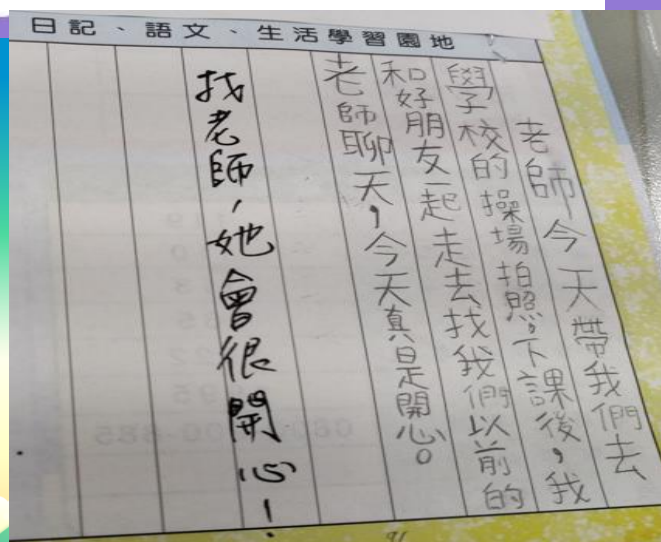 日記、語文、生活學習園地
老師今天帶我們去
學校的操場拍照。下課後，我
和好朋友一起走去找我們以前的
老師聊天，今天真是開心。
找老師，她會很開心！
91